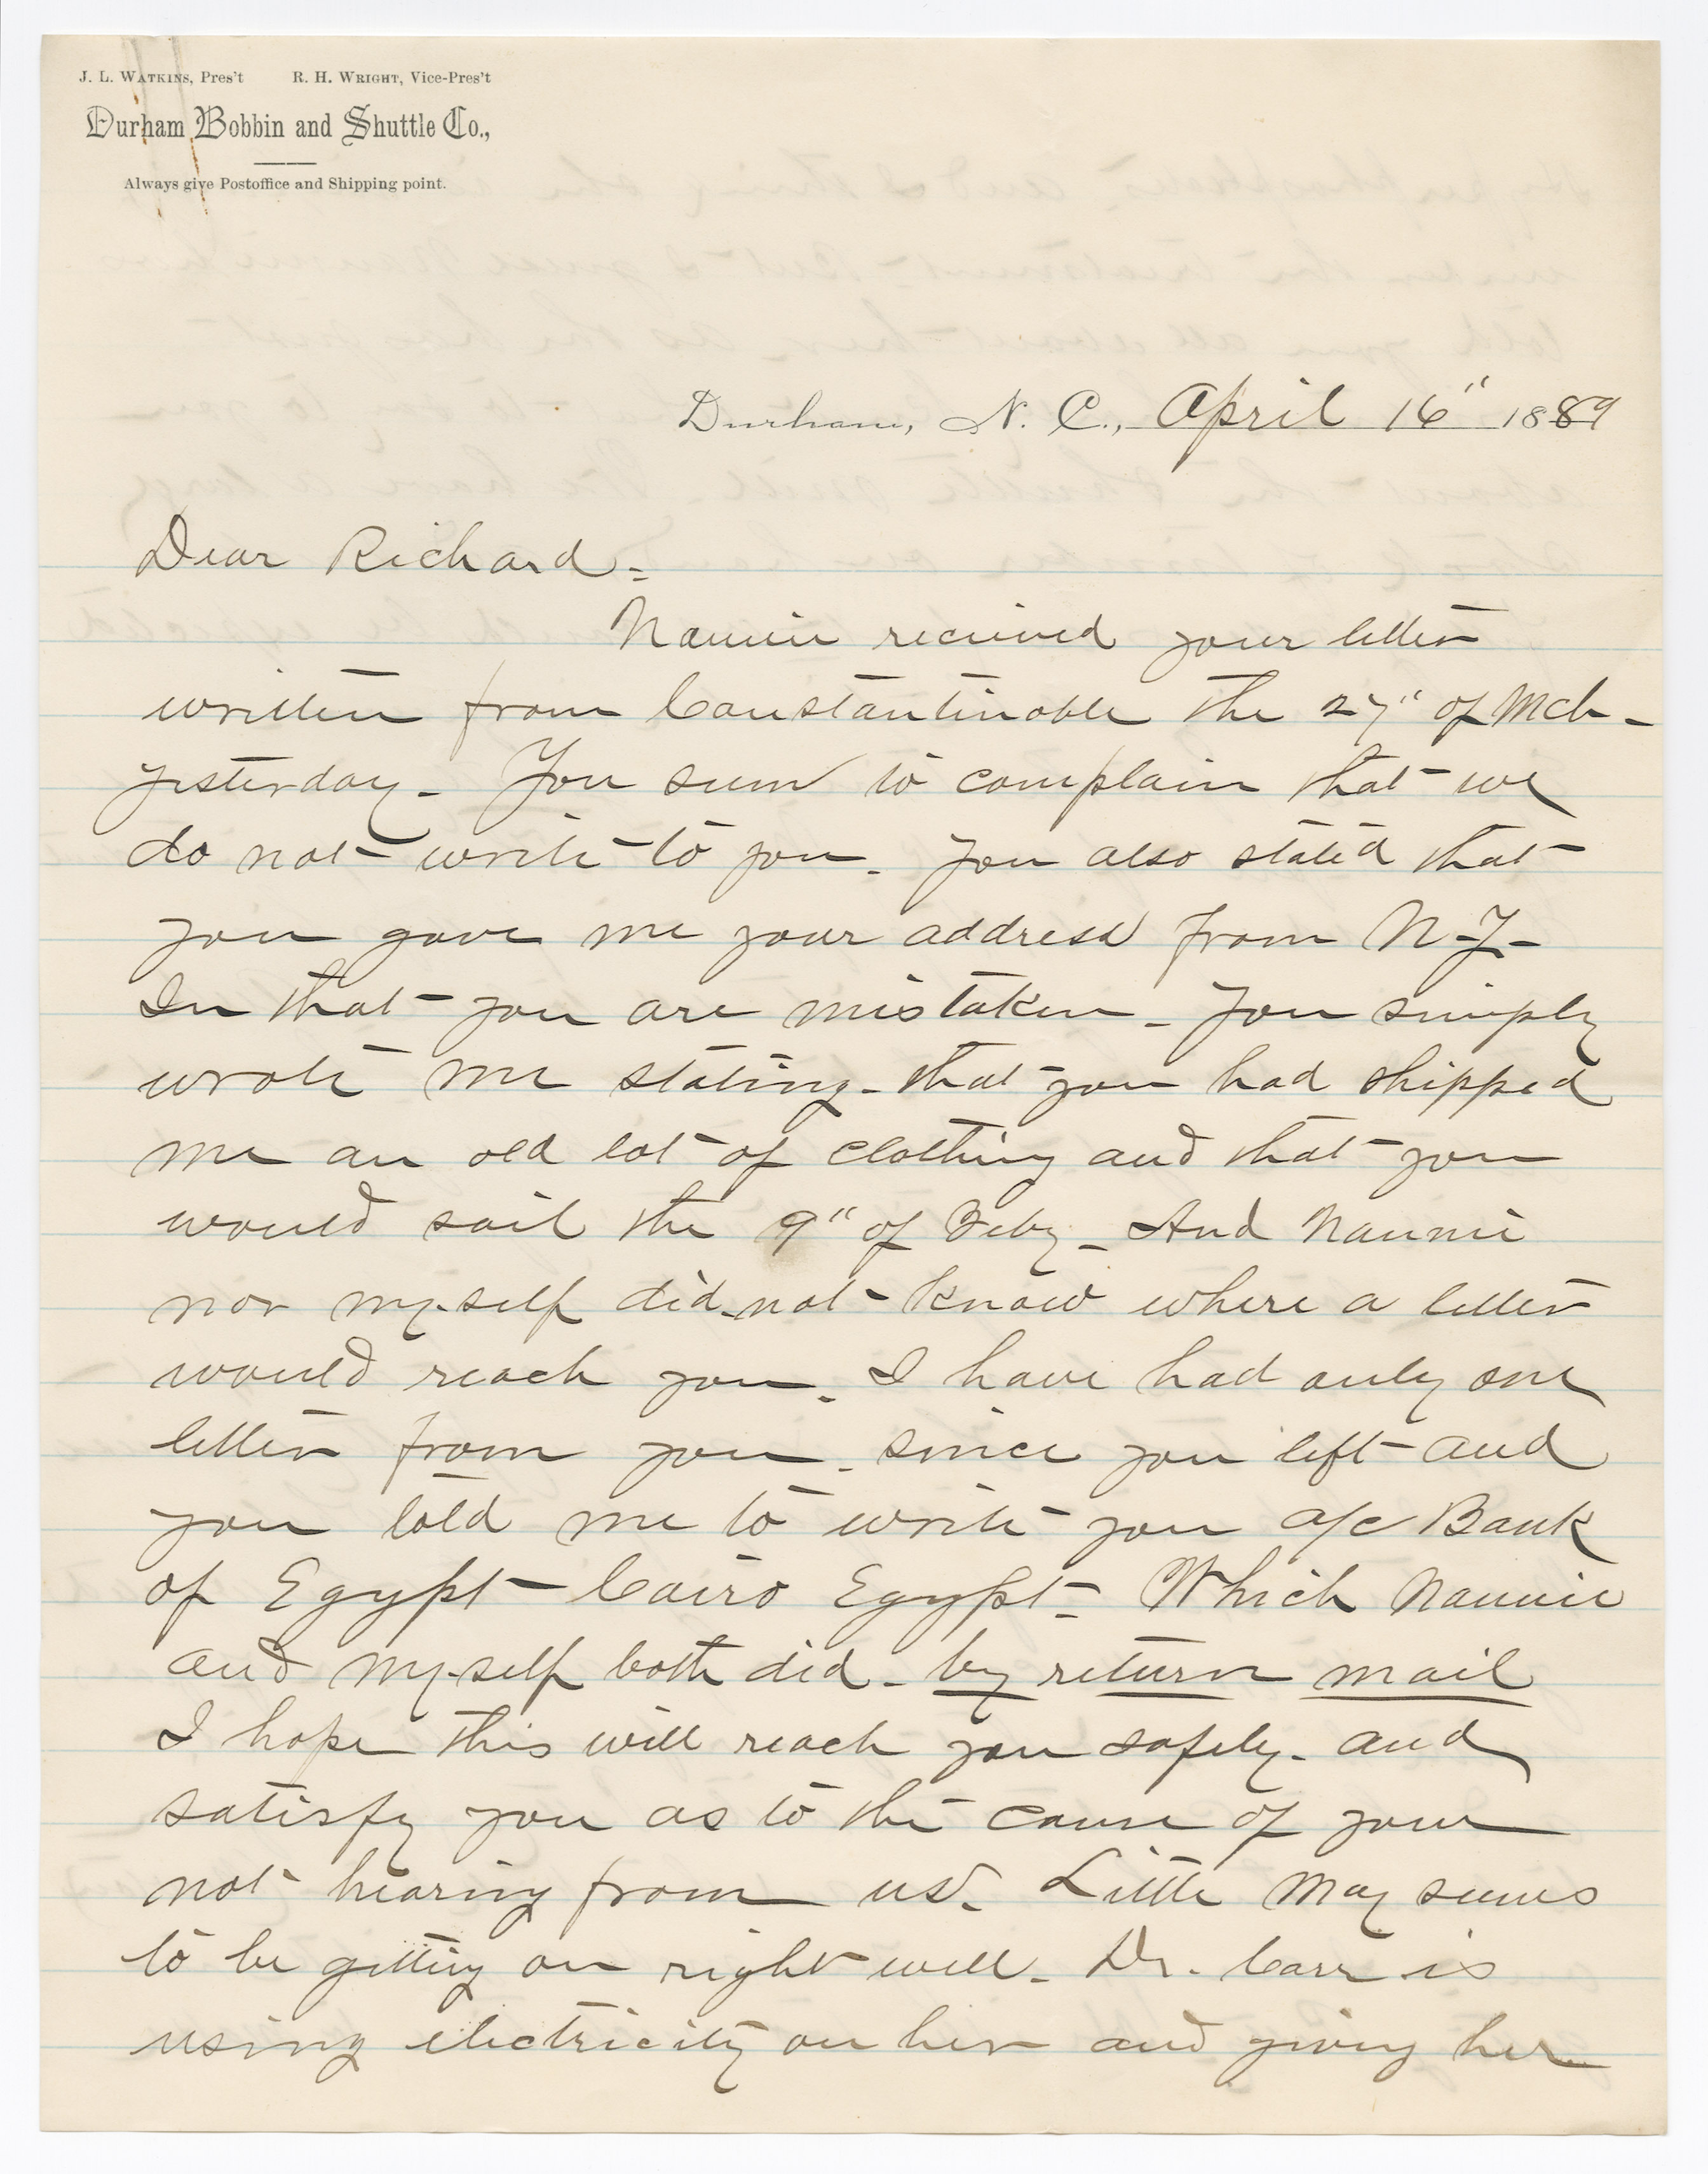 J. L. WATKINS, Pres't    R. H. WRIGHT, Vice-Pres't
Durham Bobbin and Shuttle Co.,
Always give Postoffice and Shipping point.
Durham, N. C., April 16" 1889
Dear Richard -
Nannie recieved your letter
written from Constantinoble the 27" of Mch -
yesterday - You seem to complain that we
do not write to you - you also stated that
you gave me your address from N-Y-
In that you are mistaken - You simply
wrote me stating - that you had shipped
me an old lot of clothing and that you
would sail the 9" of Feby - And Nannie
nor my-self did-not know where a letter
would reach you - I have had only one
letter from you - since you left and
you told me to write you a/c Bank
of Egypt - Cairo Egypt - Which Nannie
and my-self both did - by return mail
I hope this will reach you safely - and
satisfy you as to the cause of your
not hearing from us - Little May seems
to be getting on right well - Dr. Carr is
using electricity on her and giving her